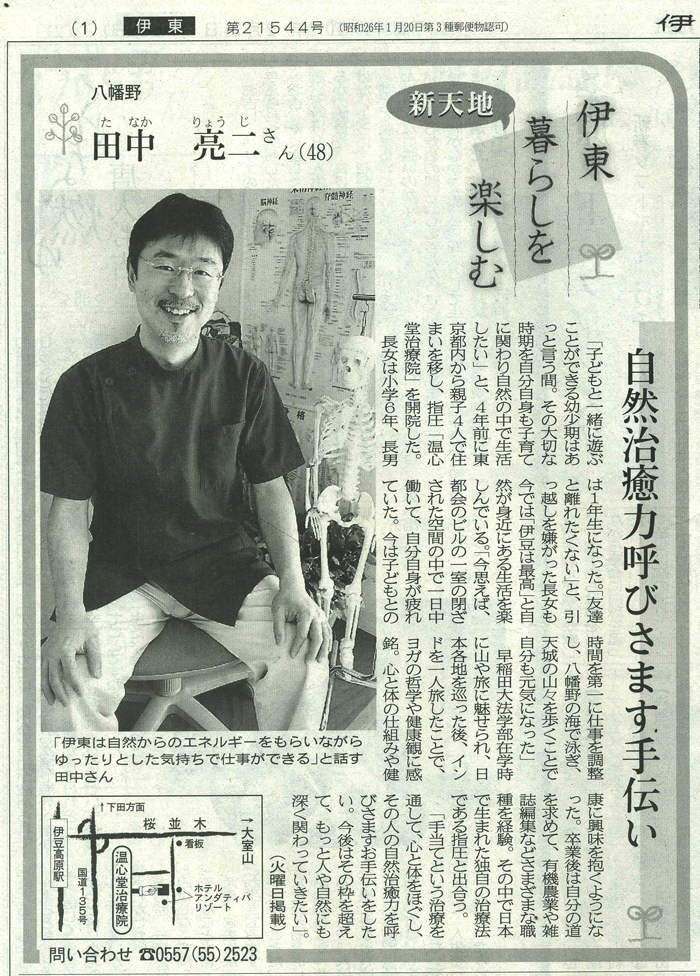 (1)
伊東
第21544号
(昭和26年1月20日第3種郵便物認可)
伊
新天地
伊東
暮らしを
楽しむ
八幡野
たなか りょうじ
田中 亮二さん(48)
脳神経
脊髄神経
自然治癒力呼びさます手伝い
「子どもと一緒に遊ぶ
ことができる幼少期はあ
っと言う間。その大切な
時期を自分自身も子育て
に関わり自然の中で生活
したい」と、4年前に東
京都内から親子4人で住
まいを移し、指圧「温心
堂治療院」を開院した。
長女は小学6年、長男
は1年生になった。「友達
と離れたくない」と、引
っ越しを嫌がった長女も
今では「伊豆は最高」と自
然が身近にある生活を楽
しんでいる。「今思えば、
都会のビルの一室の閉ざ
された空間の中で一日中
働いて、自分自身が疲れ
ていた。今は子どもとの
時間を第一に仕事を調整
し、八幡野の海で泳ぎ、
天城の山々を歩くことで
自分も元気になった」
早稲田大法学部在学時
に山や旅に魅せられ、日
本各地を巡った後、イン
ドを一人旅したことで、
ヨガの哲学や健康観に感
銘。心と体の仕組みや健
康に興味を抱くようにな
った。卒業後は自分の道
を求めて、有機農業や雑
誌編集などさまざまな職
種を経験。その中で日本
で生まれた独自の治療法
である指圧と出合う。
「手当てという治療を
通して、心と体をほぐし、
その人の自然治癒力を呼
びさますお手伝いをした
い。今後はその枠を超え
て、もっと人や自然にも
深く関わっていきたい」。
(火曜日掲載)
「伊東は自然からのエネルギーをもらいながら
ゆったりとした気持ちで仕事ができる」と話す
田中さん
↑下田方面
桜並木
→大室山
看板
伊豆高原駅
国道135号
温心堂治療院
ホテル
アンダティバ
リゾート
問い合わせ ☎0557(55)2523